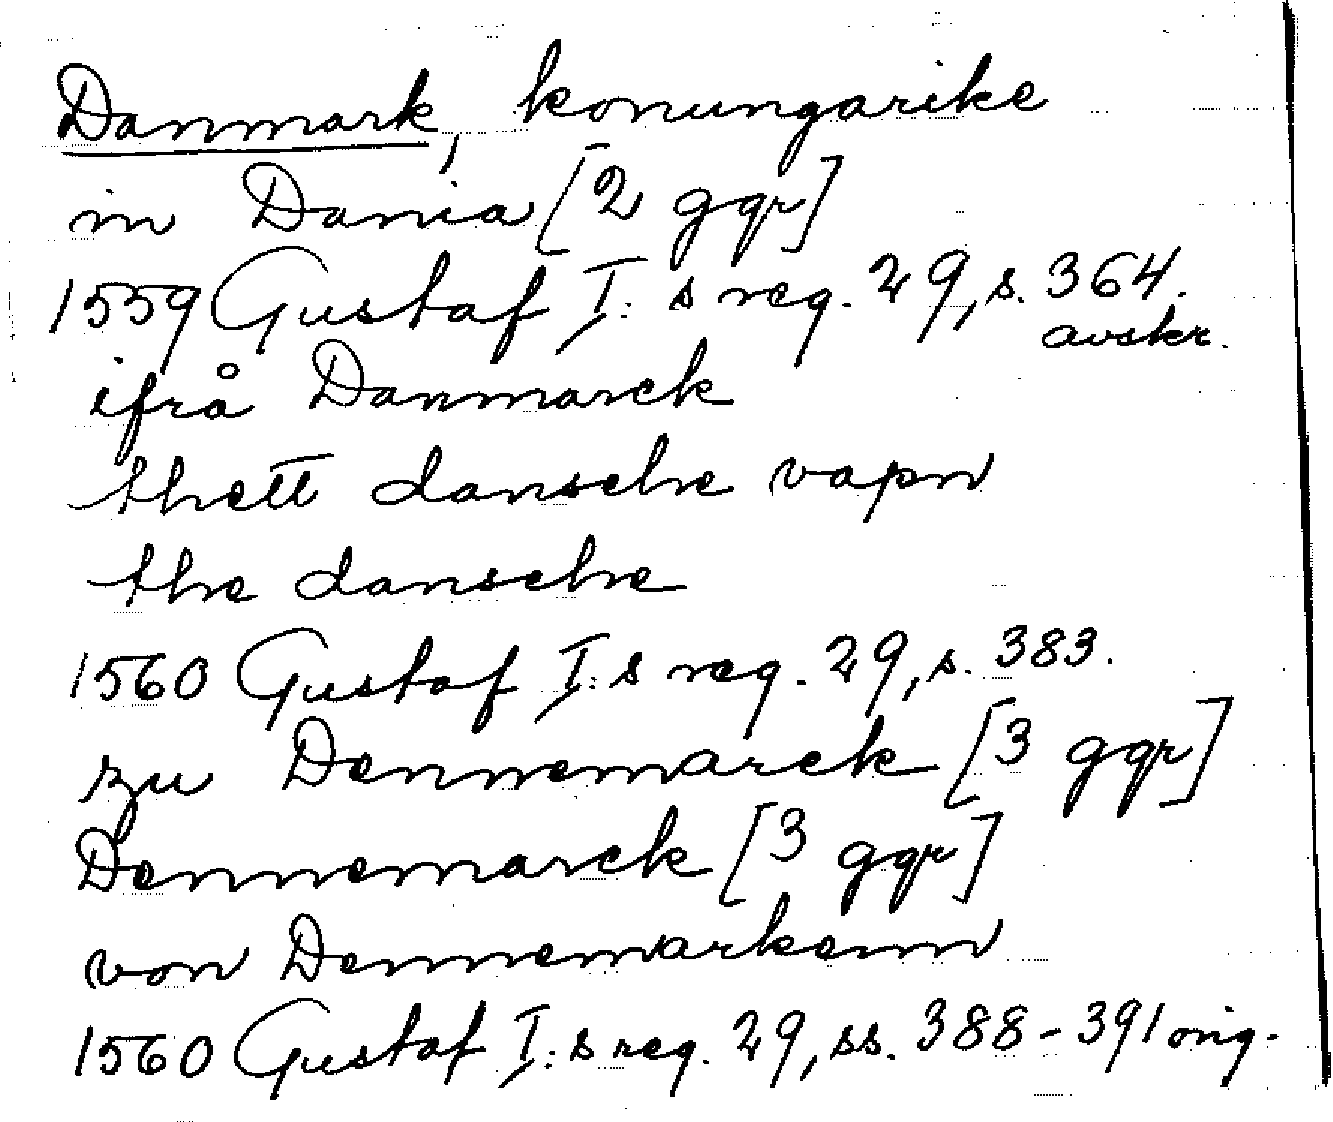 Danmark, konungarike
in Dania [2 ggr]
1559 Gustaf I:s reg. 29, s. 364.
avskr.
ifrå Danmarck
thett dansche vapn
the dansche
1560 Gustaf I:s reg. 29, s. 383.
zu Dennemarck [3 ggr]
Dennemarck [3 ggr]
von Dennemarkenn
1560 Gustaf I:s reg. 29, ss. 388-391 orig.